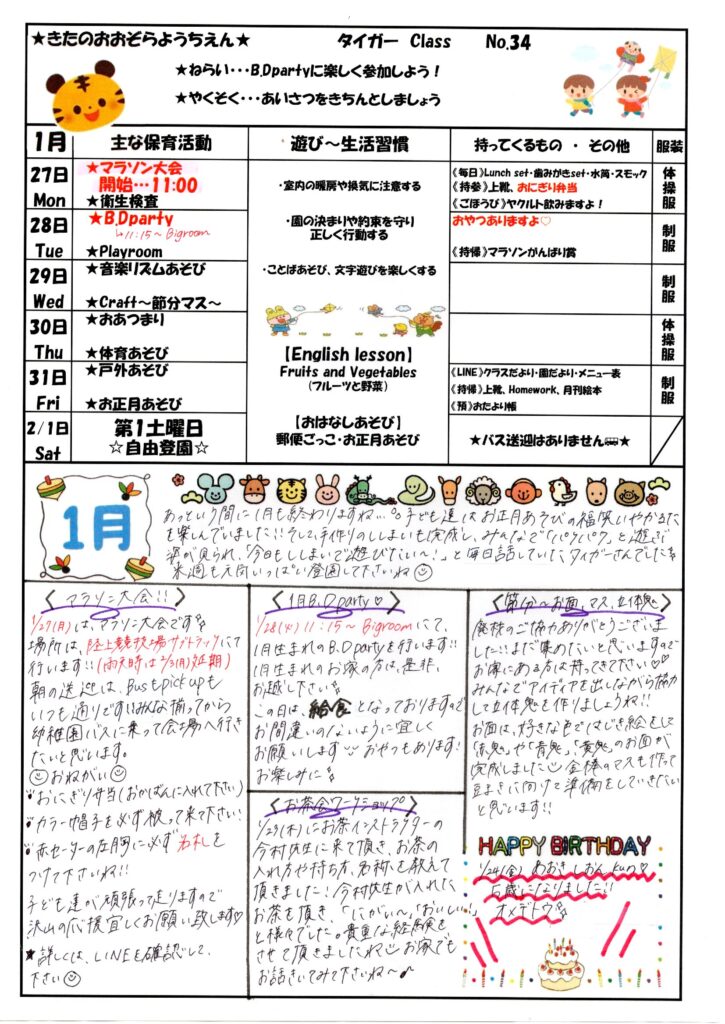 ★きたのおおぞらようちえん★ タイガー Class No.34
★ねらい・・・B.Dpartyに楽しく参加しよう！
★やくそく・・・あいさつをきちんとしましょう
1月 主な保育活動 遊び～生活習慣 持ってくるもの ・ その他 服装
27日 Mon
★マラソン大会
開始…11:00
★衛生検査
28日 Tue
★B.Dparty
↳11:15～Bigroom
★Playroom
29日 Wed
★音楽リズムあそび
★Craft～節分マス～
30日 Thu
★おあつまり
★体育あそび
31日 Fri
★戸外あそび
★お正月あそび
2/1日 Sat
第1土曜日
☆自由登園☆
・室内の暖房や換気に注意する
・園の決まりや約束を守り
正しく行動する
・ことばあそび、文字遊びを楽しくする
【English lesson】
Fruits and Vegetables
(フルーツと野菜)
【おはなしあそび】
郵便ごっこ・お正月あそび
《毎日》Lunch set・歯みがきset・水筒・スモック
《持参》上靴、おにぎり弁当
《ごほうび》ヤクルト飲みますよ！
体操服
おやつありますよ♡
《持帰》マラソンがんばり賞
制服
制服
体操服
《LINE》クラスだより・園だより・メニュー表
《持帰》上靴、Homework、月刊絵本
《預》おたより帳
制服
★バス送迎はありません★
1月
あっという間に1月も終わりますね…。子ども達はお正月あそびの福笑いやかるた
を楽しんでいました!!そして、手作りのししまいも完成し、みんなで「パクパク」と遊ぶ
姿が見られ、「今日もししまいで遊びたい～!」と毎日話していた、タイガーさんでした
来週も元気いっぱい登園して下さいね☺
〈マラソン大会!!〉
1/27(月)は、マラソン大会です
場所は、陸上競技場サブトラックにて
行います!!(雨天時は2/3(月)延期)
朝の送迎は、Busもpick upも
いつも通りです!!みんな揃ってから
幼稚園バスに乗って会場へ行き
たいと思います。
☺おねがい☺
おにぎり弁当(おかばんに入れて下さい)
カラー帽子を必ず被って来て下さい!
赤セーターの左胸に必ず名札を
つけて下さいね!!
子ども達が頑張って走りますので
沢山の応援宜しくお願い致します♡
★詳しくは、LINEを確認して
下さい☺
〈1月B.Dparty♡〉
1/28(火)11:15～Bigroomにて、
1月生まれのB.Dpartyを行います!!
1月生まれのお家の方は、是非、
お越し下さい
この日は、給食となっておりますので
お間違いのないように宜しく
お願いします おやつもあります!
お楽しみに
〈お茶会ワークショップ〉
1/23(木)にお茶インストラクターの
今村先生に来て頂き、お茶の
入れ方や持ち方、名称を教えて
頂きました!今村先生が入れた
お茶を頂き、「にがい～」「おいしい!」
と様々でした。貴重な経験を
させて頂きましたね お家でも
お話きいてみて下さいね～♪
〈節分～お面、マス、立体鬼〉
廃材のご協力ありがとうございま
した!!まだ集めたいと思いますので
お家にある方は持ってきて下さい♡♡
みんなでアイディアを出しながら協力
して立体鬼を作りましょうね!!
お面は、好きな色ではじき絵をして
「赤鬼」や「青鬼」、「黄鬼」のお面が
完成しました 金棒のマスも作って
豆まきに向けて準備をしていきたい
と思います!!
HAPPY BIRTHDAY
1/24(金) あおき しおん kun♡
5歳になりました!!
オメデトウ